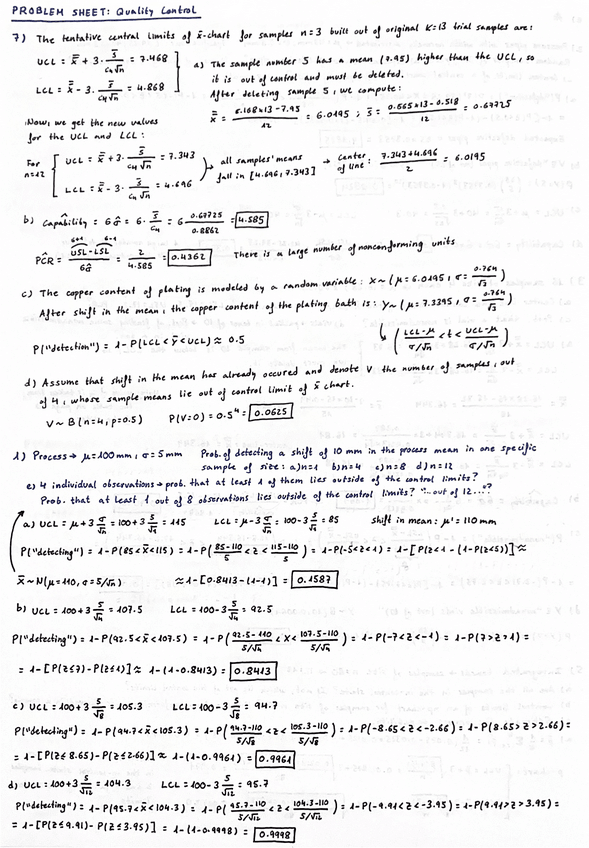 PROBLEM SHEET: Quality Control
7) The tentative central limits of x̄-chart for samples n=3 built out of original K=13 trial samples are:
UCL = x̿ + 3· s̄/(c₄√n) = 7.468
LCL = x̿ - 3· s̄/(c₄√n) = 4.868
a) The sample number 5 has a mean (7.95) higher than the UCL, so
it is out of control and must be deleted.
After deleting sample 5, we compute:
x̿ = (6.168×13-7.95)/12 = 6.0195 ; s̄ = (0.665×13-0.518)/12 = 0.67725
Now, we get the new values
for the UCL and LCL:
For n=12
UCL = x̿ + 3· s̄/(c₄√n) = 7.343
LCL = x̿ - 3· s̄/(c₄√n) = 4.696
all samples' means
fall in [4.696, 7.343]
→ center of line: (7.343+4.696)/2 = 6.0195
b) Capability = 6σ̂ = 6· s̄/c₄ = 6 0.67725/0.8862 = 4.585
PCR = (USL-LSL)/6σ̂ = 2/4.585 = 0.4362 There is a large number of nonconforming units
c) The copper content of plating is modeled by a random variable: X~(μ=6.0195, σ=0.764/√3)
After shift in the mean, the copper content of the plating bath is: Y~(μ=7.3395, σ=0.764/√3)
P("detection") = 1-P(LCL<ȳ<UCL) ≈ 0.5
((LCL-μ)/(σ/√n) < t < (UCL-μ)/(σ/√n))
d) Assume that shift in the mean has already occured and denote V the number of samples, out
of 4, whose sample means lie out of control limit of x̄ chart.
V~B(n=4, p=0.5) P(V=0) = 0.5⁴ = 0.0625
1) Process → μ=100mm, σ=5mm Prob. of detecting a shift of 10 mm in the process mean in one specific
sample of size: a) n=1 b) n=4 c) n=8 d) n=12
e) 4 individual observations → prob. that at least 1 of them lies outside of the control limits?
Prob. that at least 1 out of 8 observations lies outside of the control limits? "...out of 12...?
a) UCL = μ+3 σ/√n = 100+3 5/√1 = 115 LCL = μ-3 σ/√n = 100-3 5/√1 = 85 shift in mean: μ' = 110mm
P("detecting") = 1-P(85<x̄<115) = 1-P((85-110)/5 < z < (115-110)/5) = 1-P(-5<z<1) = 1-[P(z<1 - (1-P(z<5))] ≈
x̄~N(μ=110, σ=5/√n) ≈ 1-[0.8413-(1-1)] = 0.1587
b) UCL = 100+3 5/√4 = 107.5 LCL = 100-3 5/√4 = 92.5
P("detecting") = 1-P(92.5<x̄<107.5) = 1-P((92.5-110)/(5/√4) < X < (107.5-110)/(5/√4)) = 1-P(-7<z<-1) = 1-P(7>z>1) =
= 1-[P(z≤7)-P(z≤1)] ≈ 1-(1-0.8413) = 0.8413
c) UCL = 100+3 5/√8 = 105.3 LCL = 100-3 5/√8 = 94.7
P("detecting") = 1-P(94.7<x̄<105.3) = 1-P((94.7-110)/(5/√8) < z < (105.3-110)/(5/√8)) = 1-P(-8.65<z<-2.66) = 1-P(8.65>z>2.66) =
= 1-[P(z≤8.65)-P(z≤2.66)] ≈ 1-(1-0.9961) = 0.9961
d) UCL = 100+3 5/√12 = 104.3 LCL = 100-3 5/√12 = 95.7
P("detecting") = 1-P(95.7<x̄<104.3) = 1-P((95.7-110)/(5/√12) < z < (104.3-110)/(5/√12)) = 1-P(-9.91<z<-3.95) = 1-P(9.91>z>3.95) =
= 1-[P(z≤9.91)-P(z≤3.95)] = 1-(1-0.9998) = 0.9998